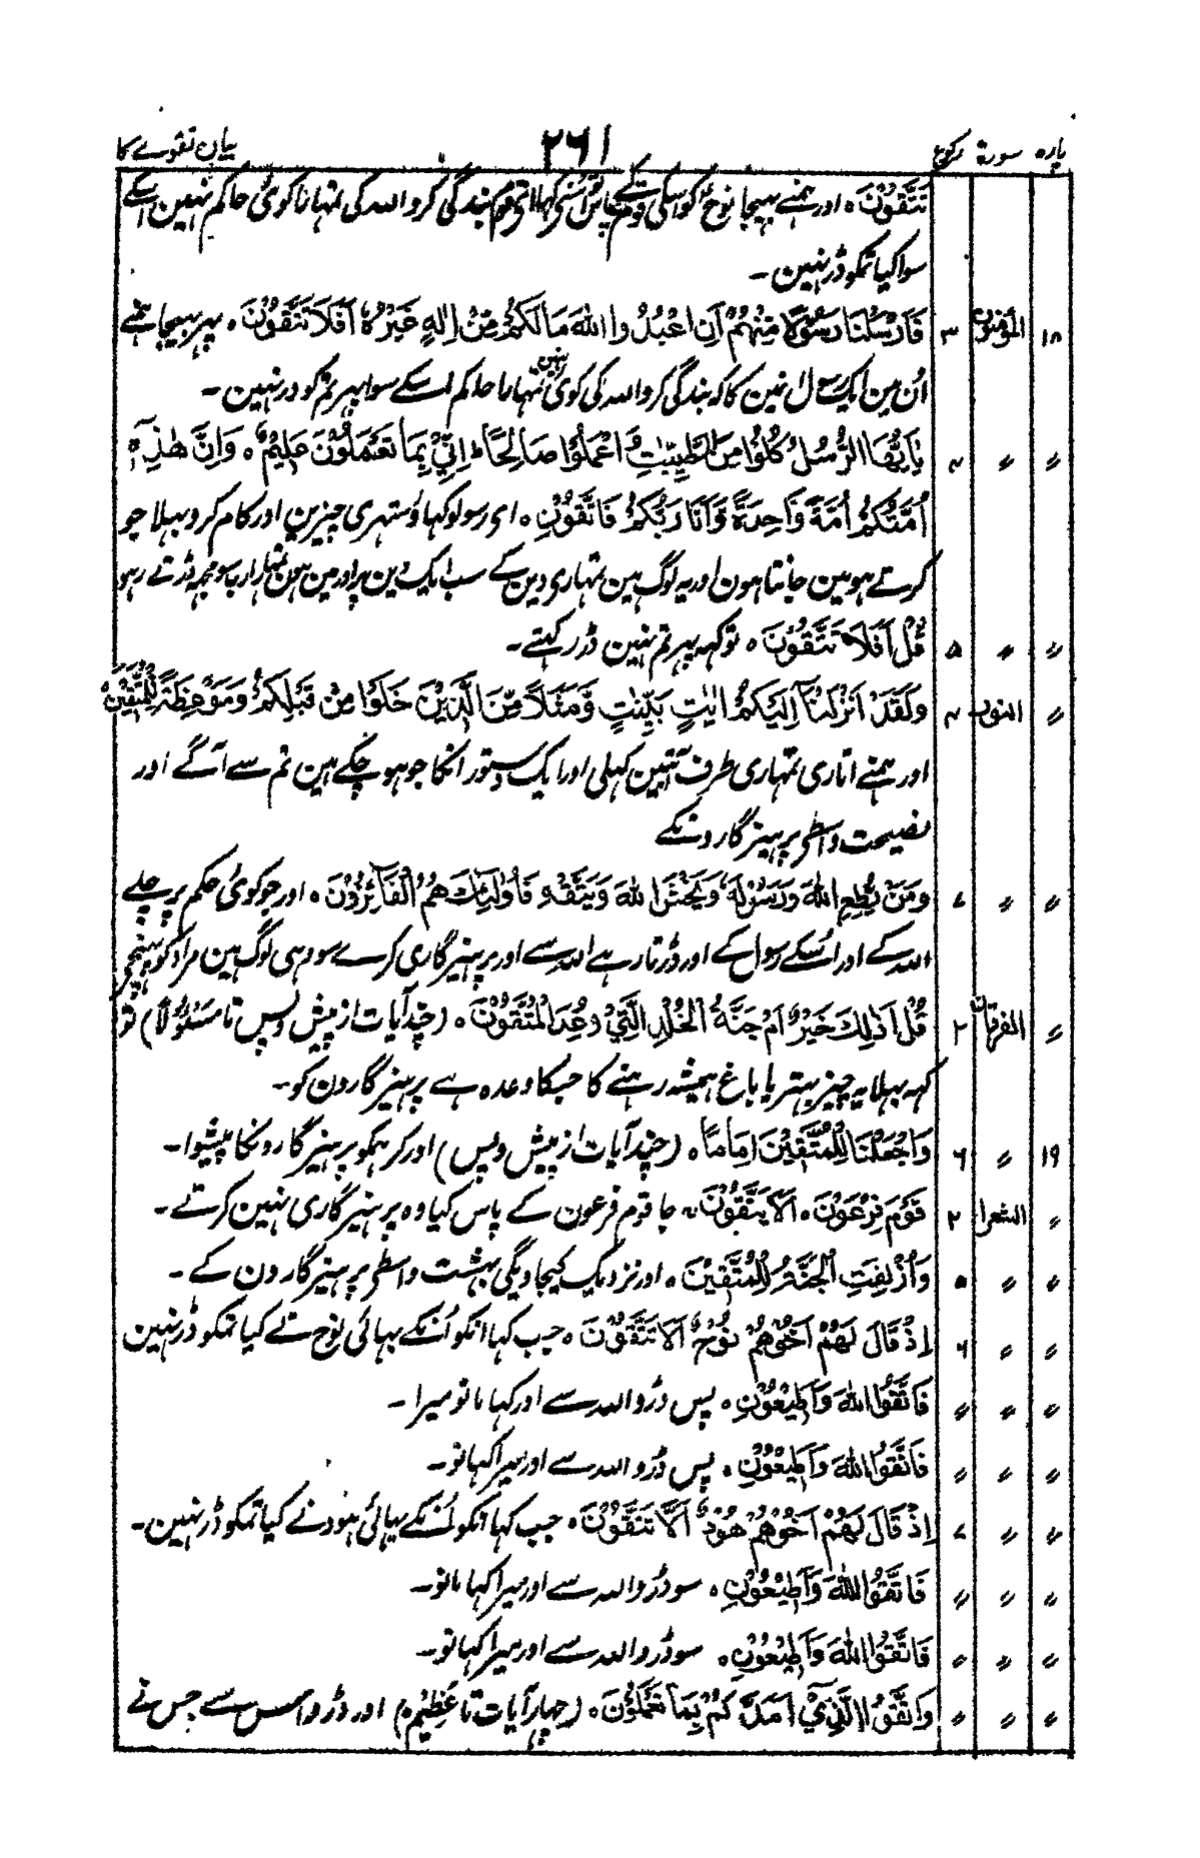 پارہ سورۃ رکوع ۲۶۱ بیان تقوے کا
تَتَّقُوْنَ ہ اور ہمنے بھیجا نوح کو اسکی قوم کے پاس اُسنی کہا ای قوم بندگی کرو اللہ کی تمہارا کوئی حاکم نہین اسکے
سوا کیا تمکو ڈر نہین ۔
۱۸ المؤمنون ۳ فَاَرْسَلْنَا رَسُوْلًا مِنْهُمْ اَنِ اعْبُدُوا اللّٰهَ مَا لَكُمْ مِّنْ اِلٰهٍ غَيْرُهٗ اَفَلَا تَتَّقُوْنَ ہ پہر بھیجا ہمنے
اُن مین ایک رسول انمین کا کہ بندگی کرو اللہ کی کوئی نہین تمہارا حاکم اسکے سوا پہر تم کو ڈر نہین ۔
〃 〃 ۴ يَاَيُّهَا الرُّسُلُ كُلُوْا مِنَ الطَّيِّبٰتِ وَاعْمَلُوْا صَالِحًا ط اِنِّيْ بِمَا تَعْمَلُوْنَ عَلِيْمٌ ہ وَاِنَّ هٰذِهٖ
اُمَّتُكُمْ اُمَّةً وَّاحِدَةً وَّاَنَا رَبُّكُمْ فَاتَّقُوْنِ ہ ای رسولو کہاؤ ستہری چیزین اور کام کرو بہلا جو
کرتے ہو مین جانتا ہون اور یہ لوگ ہین تمہاری دین کے سب ایک دین پر اور مین ہون تمہارا رب سو مجہہ ڈرتے رہو
〃 〃 ۵ قُلْ اَفَلَا تَتَّقُوْنَ ہ تو کہہ پہر تم نہین ڈر رکہتے ۔
〃 النور ۴ وَلَقَدْ اَنْزَلْنَا اِلَيْكُمْ اٰيٰتٍ بَيِّنٰتٍ وَّمَثَلًا مِّنَ الَّذِيْنَ خَلَوْا مِنْ قَبْلِكُمْ وَمَوْعِظَةً لِّلْمُتَّقِيْنَ
اور ہمنے اتاری تمہاری طرف آیتین کہلی اور ایک دستور انکا جو ہو چکے ہین تم سے آگے اور
نصیحت واسطی پرہیزگارونکے
〃 〃 ۷ وَمَنْ يُّطِعِ اللّٰهَ وَرَسُوْلَهٗ وَيَخْشَ اللّٰهَ وَيَتَّقْهِ فَاُولٰٓئِكَ هُمُ الْفَآئِزُوْنَ ہ اور جو کوئی حکم پر چلے
اللہ کے اور اُسکے رسول کے اور ڈرتا رہے اللہ سے اور پرہیزگاری کرے سو وہی لوگ ہین مراد کو پہنچی
〃 الفرقان ۲ قُلْ اَذٰلِكَ خَيْرٌ اَمْ جَنَّةُ الْخُلْدِ الَّتِيْ وُعِدَ الْمُتَّقُوْنَ ہ (چند آیات از پیش و پس تا مَسْئُوْلًا) تو
کہہ بہلا یہ چیز بہتر یا باغ ہمیشہ رہنے کا جسکا وعدہ ہے پرہیزگارون کو ۔
۱۹ 〃 ۶ وَاجْعَلْنَا لِلْمُتَّقِيْنَ اِمَامًا ہ (چند آیات از پیش و پس) اور کر ہمکو پرہیزگارونکا پیشوا ۔
〃 الشعرا ۲ قَوْمَ فِرْعَوْنَ ہ اَلَا يَتَّقُوْنَ ہ جا قوم فرعون کے پاس کیا وہ پرہیزگاری نہین کرتے ۔
〃 〃 ۵ وَاُزْلِفَتِ الْجَنَّةُ لِلْمُتَّقِيْنَ ہ اور نزدیک کیجاویگی بہشت واسطی پرہیزگارون کے ۔
〃 〃 ۶ اِذْ قَالَ لَهُمْ اَخُوْهُمْ نُوْحٌ اَلَا تَتَّقُوْنَ ہ جب کہا انکو اُنکے بہائی نوح نے کیا تمکو ڈر نہین
〃 〃 〃 فَاتَّقُوا اللّٰهَ وَاَطِيْعُوْنِ ہ پس ڈرو اللہ سے اور کہا مانو میرا ۔
〃 〃 〃 فَاتَّقُوا اللّٰهَ وَاَطِيْعُوْنِ ہ پس ڈرو اللہ سے اور میرا کہا مانو ۔
〃 〃 ۷ اِذْ قَالَ لَهُمْ اَخُوْهُمْ هُوْدٌ اَلَا تَتَّقُوْنَ ہ جب کہا انکو اُنکے بہائی ہود نے کیا تمکو ڈر نہین ۔
〃 〃 〃 فَاتَّقُوا اللّٰهَ وَاَطِيْعُوْنِ ہ سو ڈرو اللہ سے اور میرا کہا مانو ۔
〃 〃 〃 فَاتَّقُوا اللّٰهَ وَاَطِيْعُوْنِ ہ سو ڈرو اللہ سے اور میرا کہا مانو ۔
〃 〃 〃 وَاتَّقُوا الَّذِيْ اَمَدَّكُمْ بِمَا تَعْمَلُوْنَ ہ (چہار آیات تا عَظِيْمٍ) اور ڈرو اس سے جس نے